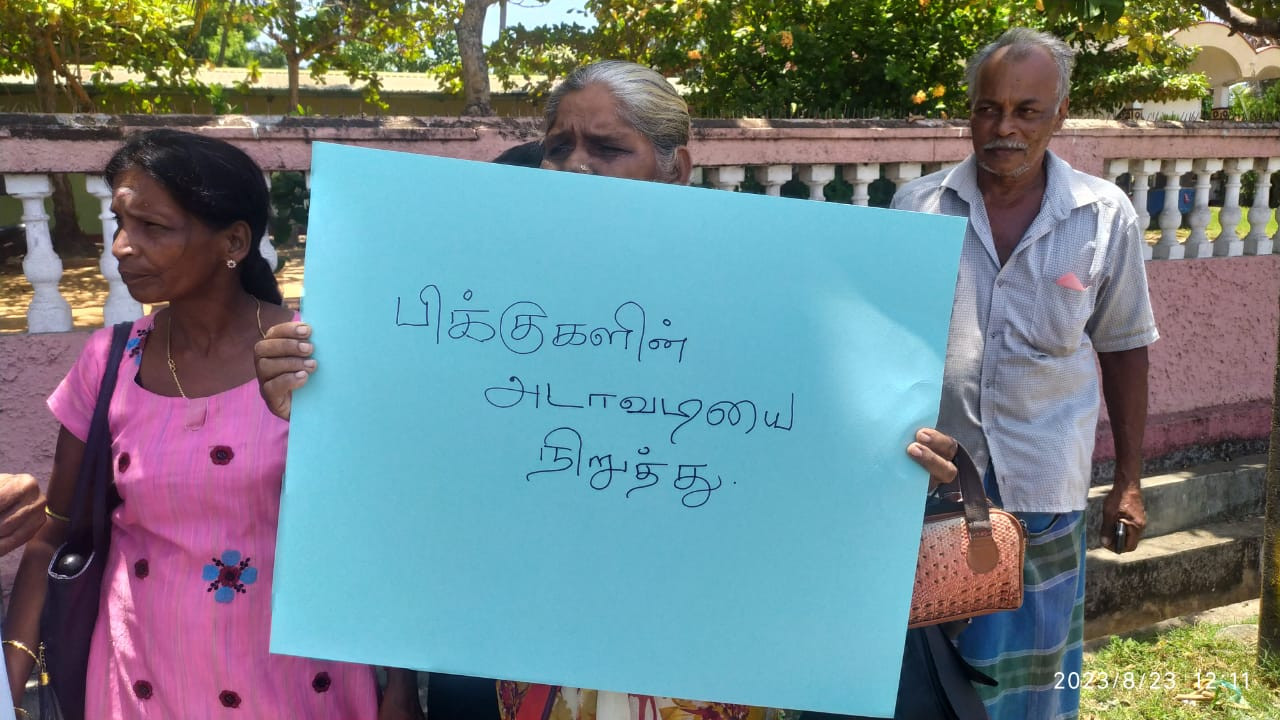 பிக்குகளின்
அடாவடியை
நிறுத்து.
2023/8/23 12:11